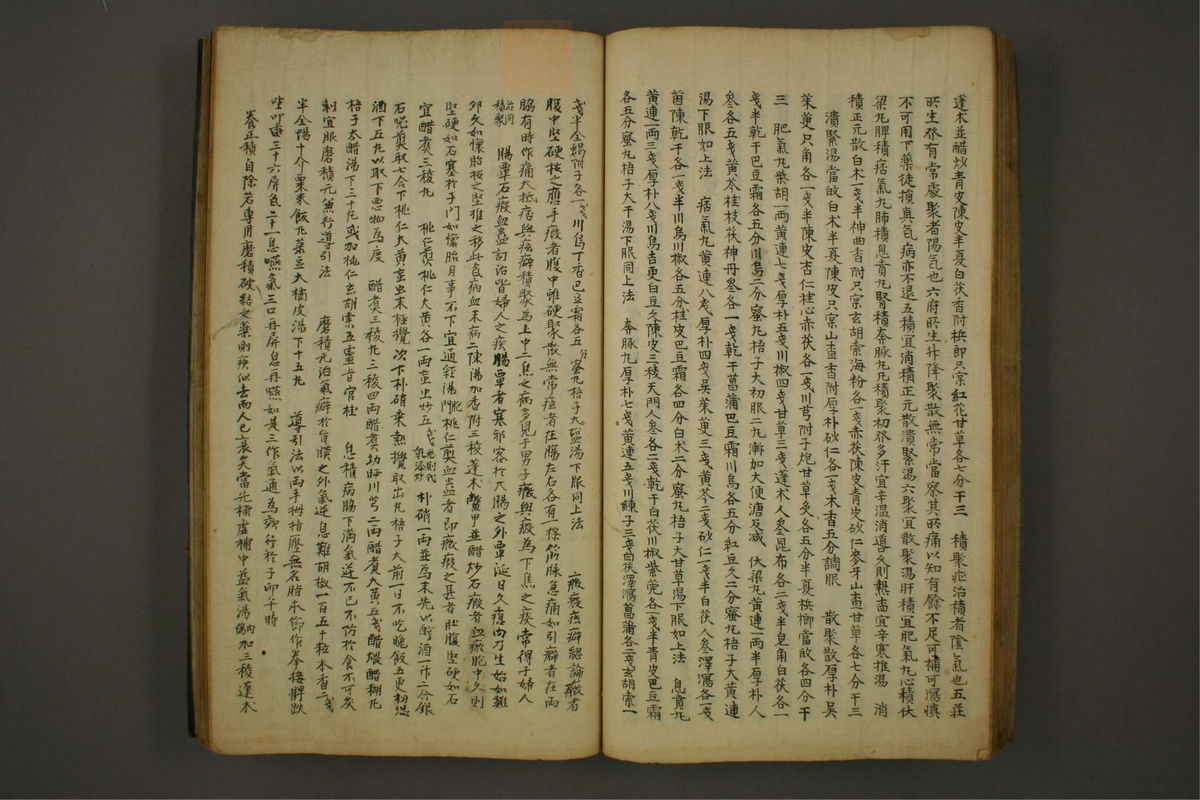 蓬朮並醋炒青皮陳皮半夏白茯香附枳卽只宗紅花甘草各七分干三　積聚疟治積者陰氣也五莊
所生發有常處聚者陽氣也六府所生升降聚散無常當察其所痛以知有餘不足可補可瀉愼
不可用下藥徒損眞氣病亦不退五積宜消積正元散潰緊湯六聚宜散聚湯肝積宜肥氣丸心積伏
梁丸脾積痞氣丸肺積息賁丸腎積奔豚丸凡積聚初發多汗宜辛溫消導久則熱畜宜辛寒推湯　消
積正元散白朮一戔半神曲香附只宗玄胡索海粉各一戔赤茯陳皮青皮砂仁麥牙山査甘草各七分干三
潰緊湯當䢎白朮半夏陳皮只宗山査香附厚朴砂仁各一戔木香五分調服　散聚散厚朴吳
茱萸只角各一戔半陳皮杏仁桂心赤茯各一戔川芎附子炮甘草灸各五分半夏梹榔當䢎各四分干
三　肥氣丸柴胡一兩黃連七戔厚朴五戔川椒四戔甘草三戔蓬朮人參昆布各二戔半皂角白茯各一
戔半乾干巴豆霜各五分川烏二分蜜丸梧子大初服二丸漸加大便溏及减　伏梁丸黃連一兩半厚朴人
參各五戔黃芩桂枝茯神丹參各一戔乾干菖蒲巴豆霜川烏各五分紅豆久二分蜜丸梧子大黃連
湯下服如上法　痞氣丸黃連八戔厚朴四戔吳茱萸三戔黃芩二戔砂仁一戔半白茯人參澤瀉各一戔
茵陳乾干各一戔半川烏川椒各五分桂皮巴豆霜各四分白朮二分蜜丸梧子大甘草湯下服如上法　息賁丸
黃連一兩三戔厚朴八戔川烏吉更白豆久陳皮三稜天門人參各二戔乾干白茯川椒紫菀各一戔半青皮巴豆霜
各五分蜜丸梧子大干湯下服同上法　奔豚丸厚朴七戔黃連五戔川練子三戔白茯澤瀉菖蒲各二戔玄胡索一
戔半全蝎附子各一戔川烏丁香巴豆霜各五分蜜丸梧子大塩湯下服同上法　癥瘕痃癖總論癥者
腹中堅硬按之應手瘕者腹中雖硬聚散無常痃者在腸左右各有一條筋脉急痛如引癖者在兩
脇有時作痛大抵痞與痃癖積聚爲上中二焦之病多見于男子癥與瘕爲下焦之疾常得于婦人
治同積聚　腸覃石瘕血蠱訂治皆婦人之疾腸覃者寒邪客於大腸之外覃延日久瘜肉乃生始如雞
卵久如懷胎按之堅推之移此氣病血未病二陳湯加香附三稜蓬朮鱉甲並醋炒石瘕者血瘕胞中久則
堅硬如石塞於子門如懷胎月事不下宜通經湯桃仁煎血蠱者卽癥瘕之甚者肚腹堅硬如石
宜醋煮三稜丸　桃仁煎桃仁大黃各一兩䖟虫炒五戔朴硝一兩並爲末先以醇酒一作二合銀
石器煎取七合下桃仁大黃䖟虫末極攪次下朴硝末熟攪取出丸梧子大前一日不吃晚飯五更初溫
酒下五丸以取下惡物爲度　醋煮三稜丸三稜四兩醋煮切晒川芎二兩醋煮大黃五戔醋煨醋糊丸
梧子大醋湯下三十丸或加桃仁玄胡索五靈旨官桂　息積病脇下滿氣逆不已不妨於食不可灸
刺宜服磨積元兼行導引法　磨積元治氣癖於肓膜之外氣逆息難胡椒一百五十粒木香二戔
半全蝎十个粟米飯丸菉豆大橘皮湯下十五丸　導引法以兩手拇指壓無名指本節作拳接髀趺
坐叩齒三十六屛氣二十一息嚥氣三口再屛息再嚥如是三作氣通爲效行於子卯午時
養正積自除若專用磨積破結之藥則疾似去而人已衰矣當先補虛補中益氣湯加三稜蓬朮